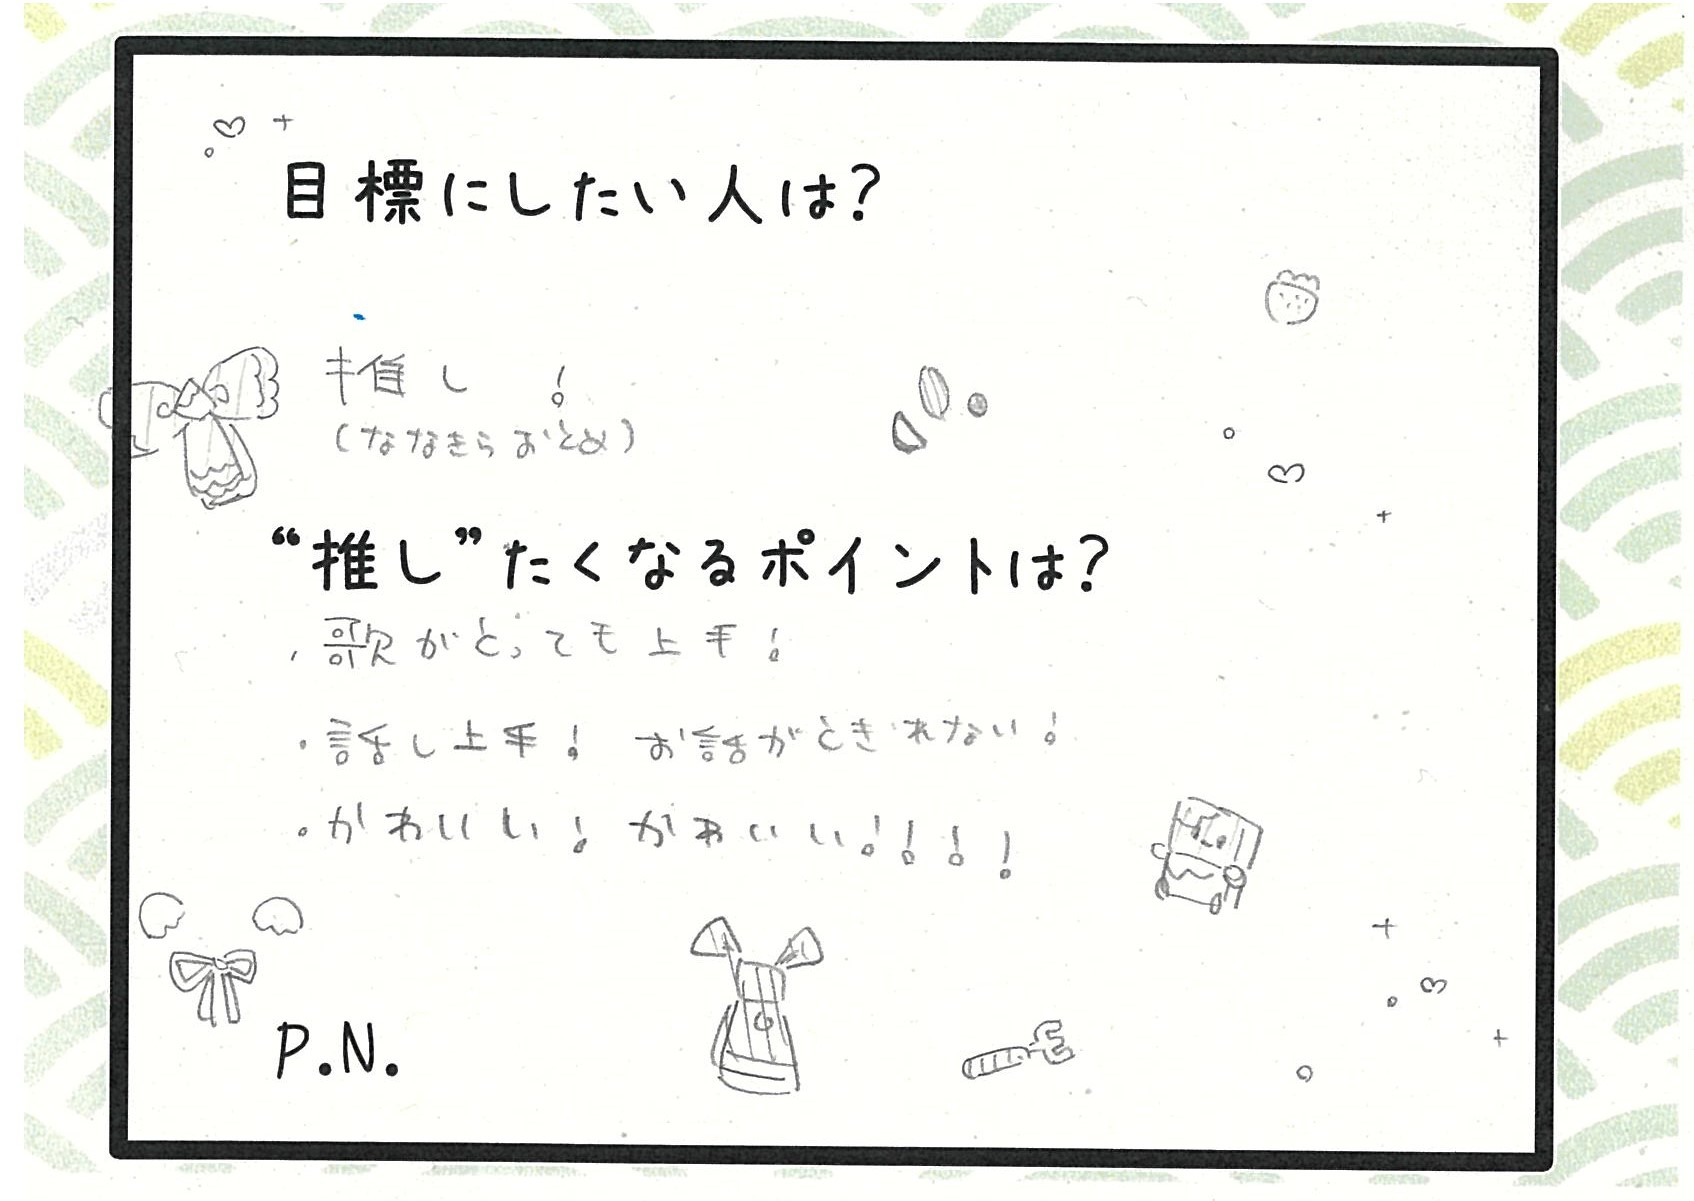 目標にしたい人は?
推し!
(ななきらおとめ)
“推し”たくなるポイントは?
・歌がとっても上手!
・話し上手! お話がときれない!
・かわいい! かわいい!!!!
P.N.